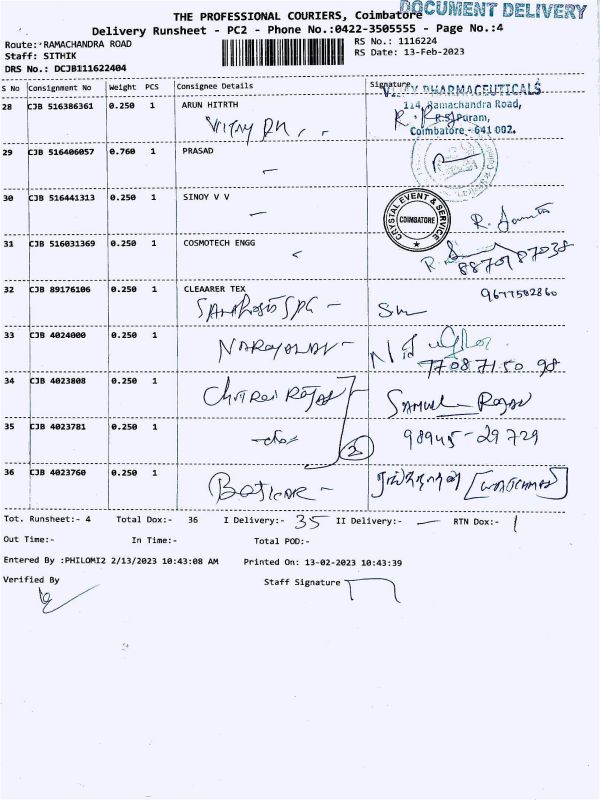 DOCUMENT DELIVERY
THE PROFESSIONAL COURIERS, Coimbatore
Delivery Runsheet - PC2 - Phone No.:0422-3505555 - Page No.:4
Route: RAMACHANDRA ROAD
RS No.: 1116224
Staff: SITHIK
RS Date: 13-Feb-2023
DRS No.: DCJB111622404
S No Consignment No Weight PCS Consignee Details Signature
PHARMACEUTICALS
28 CJB 516386361 0.250 1 ARUN HITRTH
114, Ramachandra Road,
R.S. Puram,
Coimbatore - 641 002.
29 CJB 516406057 0.760 1 PRASAD
30 CJB 516441313 0.250 1 SINOY V V
CRYSTAL EVENT & SERVICE
COIMBATORE
31 CJB 516031369 0.250 1 COSMOTECH ENGG
8870187038
32 CJB 89176106 0.250 1 CLEAARER TEX
9677582860
33 CJB 4024000 0.250 1 NARAYANAN -
77087150 98
34 CJB 4023808 0.250 1
SAMUEL RAJAN
35 CJB 4023781 0.250 1 -do-
2
98945-29729
36 CJB 4023760 0.250 1
Tot. Runsheet:- 4 Total Dox:- 36 I Delivery:- 35 II Delivery:- — RTN Dox:- 1
Out Time:- In Time:- Total POD:-
Entered By :PHILOMI2 2/13/2023 10:43:08 AM Printed On: 13-02-2023 10:43:39
Verified By Staff Signature